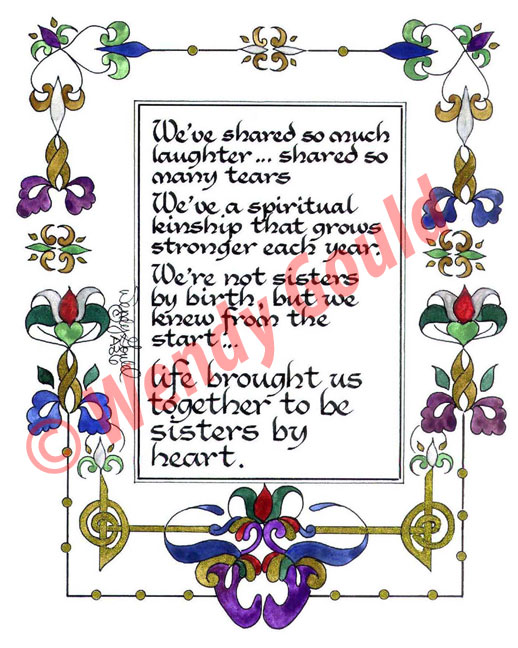 We've shared so much
laughter... shared so
many tears
We've a spiritual
kinship that grows
stronger each year.
We're not sisters
by birth, but we
knew from the
start...
life brought us
together to be
sisters by
heart.
© Wendy Gould